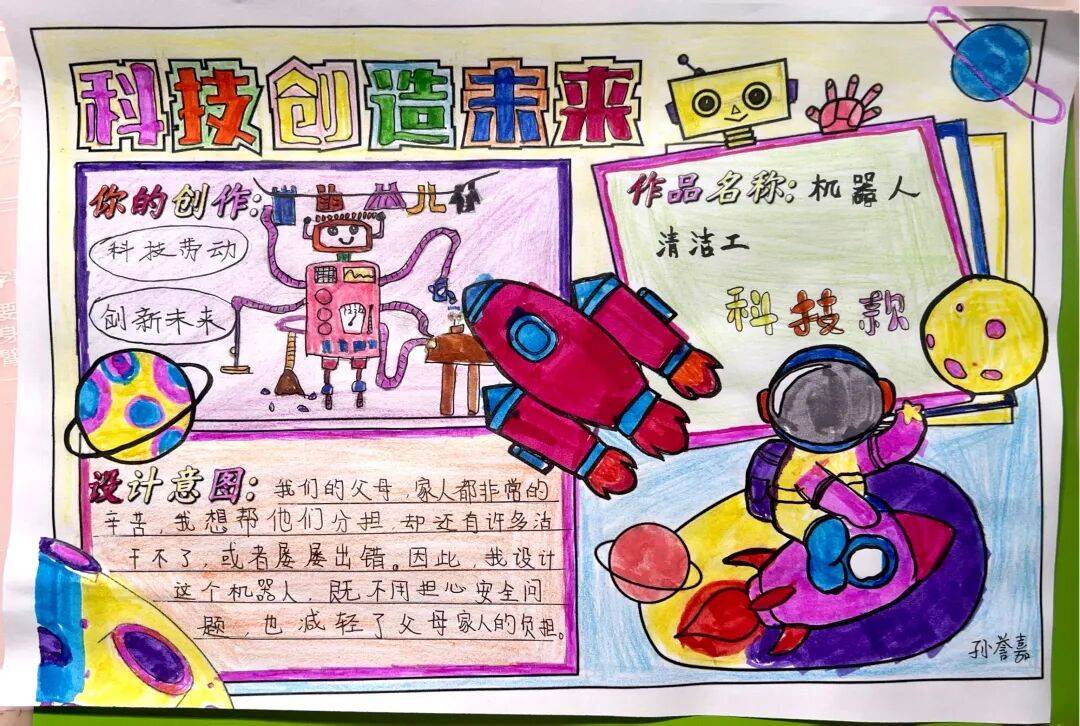 科技创造未来
你的创作：
科技劳动
创新未来
作品名称：机器人
清洁工
科技款
设计意图：我们的父母，家人都非常的
辛苦，我想帮他们分担，却还有许多活
干不了，或者屡屡出错。因此，我设计
这个机器人，既不用担心安全问
题，也减轻了父母家人的负担。
孙誉嘉